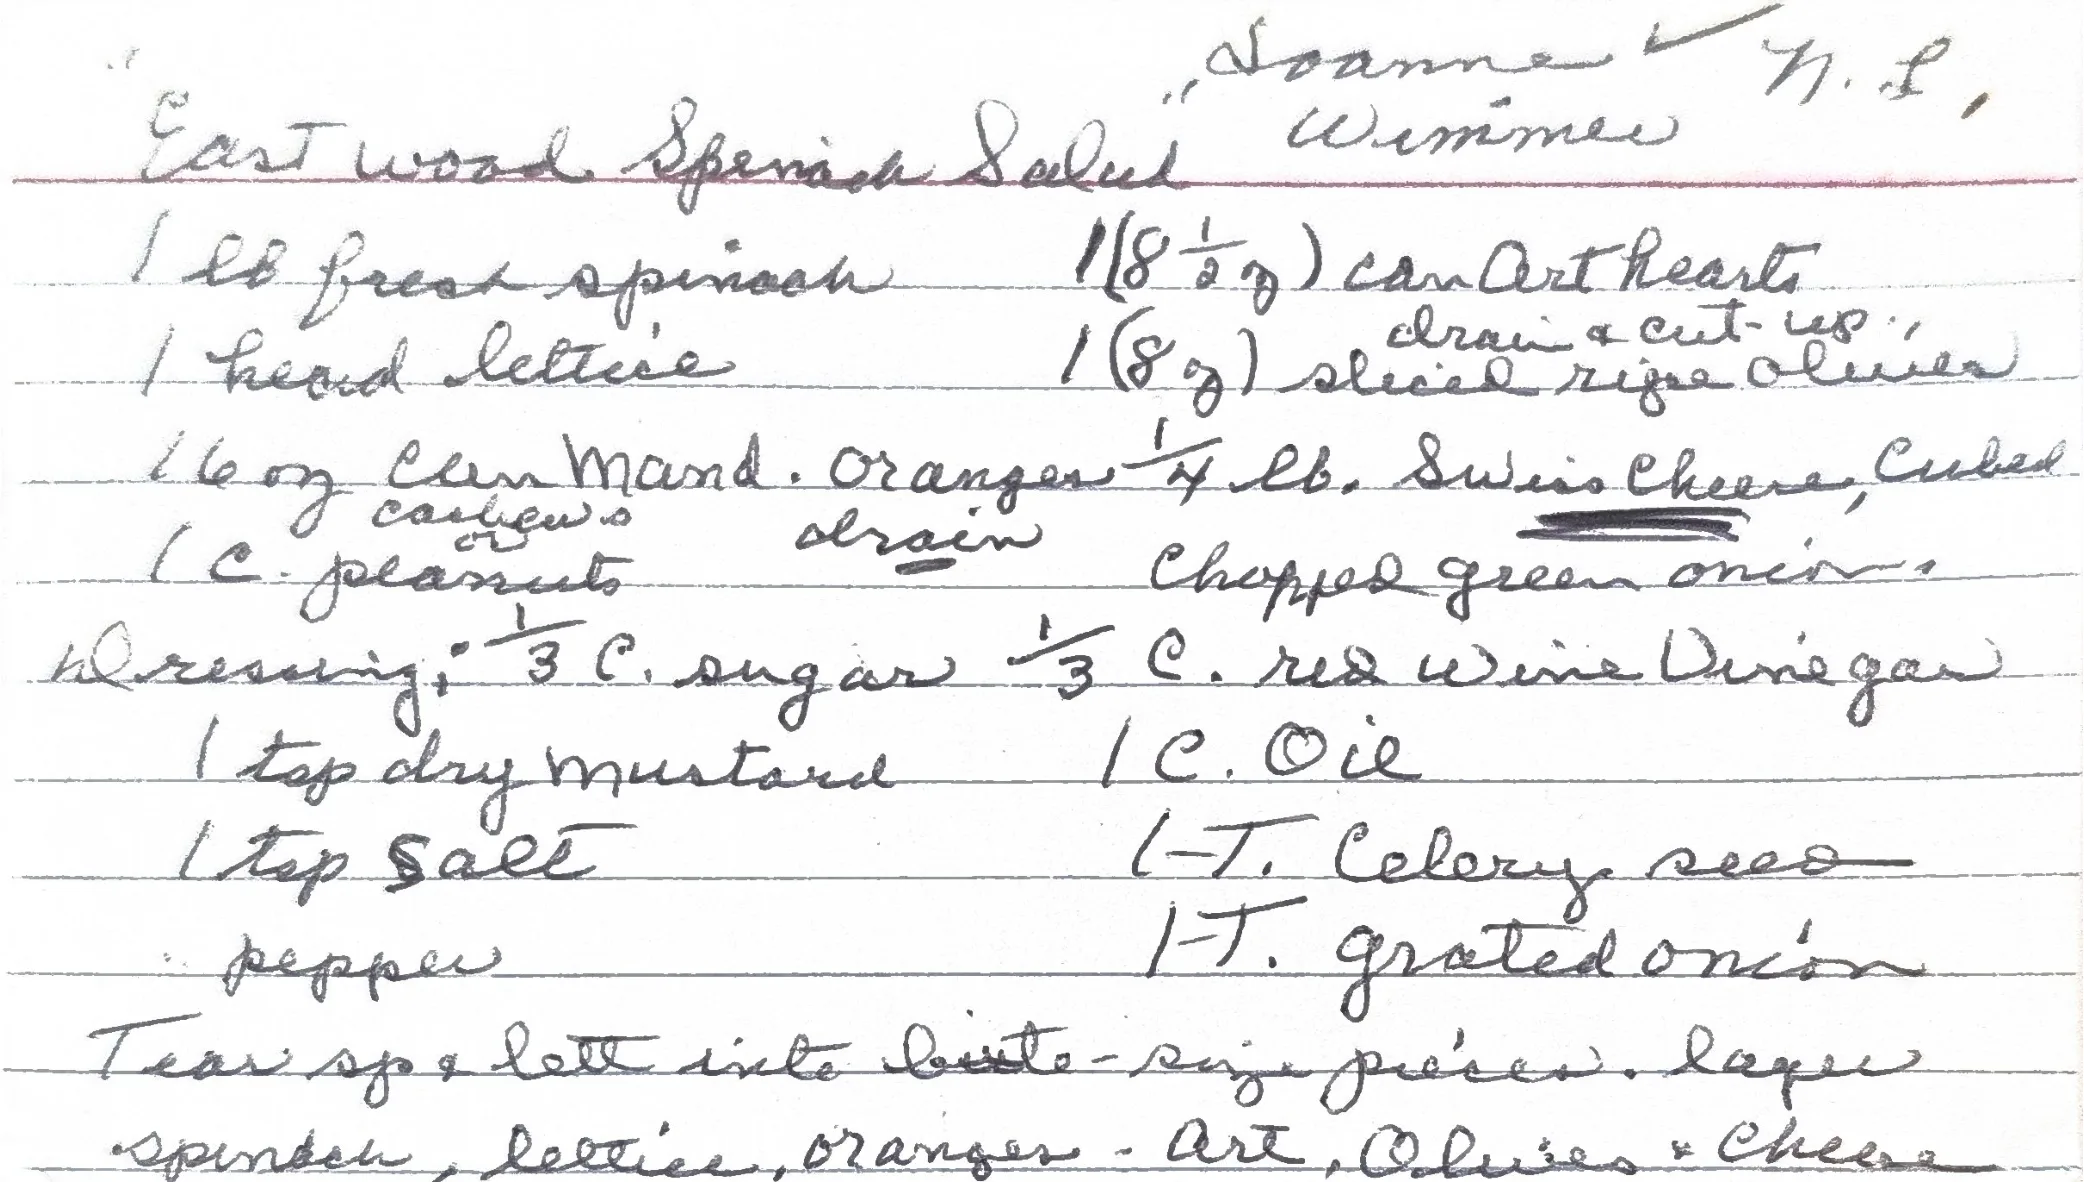 Joanne ✓ N. L.
Wimmer
"Eastwood Spinach Salad"
1 lb fresh spinach 1 (8 1/2 oz) can Art hearts
drain & cut-up
1 head lettice 1 (8 oz) sliced ripe olives
16 oz can Mand. oranges 1/4 lb. Swiss Cheese, Cubed
cashews drain
or
1 C. peanuts Chopped green onion
Dressing: 1/3 C. sugar 1/3 C. red wine Vinegar
1 tsp dry mustard 1 C. Oil
1 tsp Salt 1 T. Celery seed
pepper 1 T. grated onion
Tear sp & lett into bite-size pieces. layer
spinach, lettice, oranges - Art, Olives & Cheese